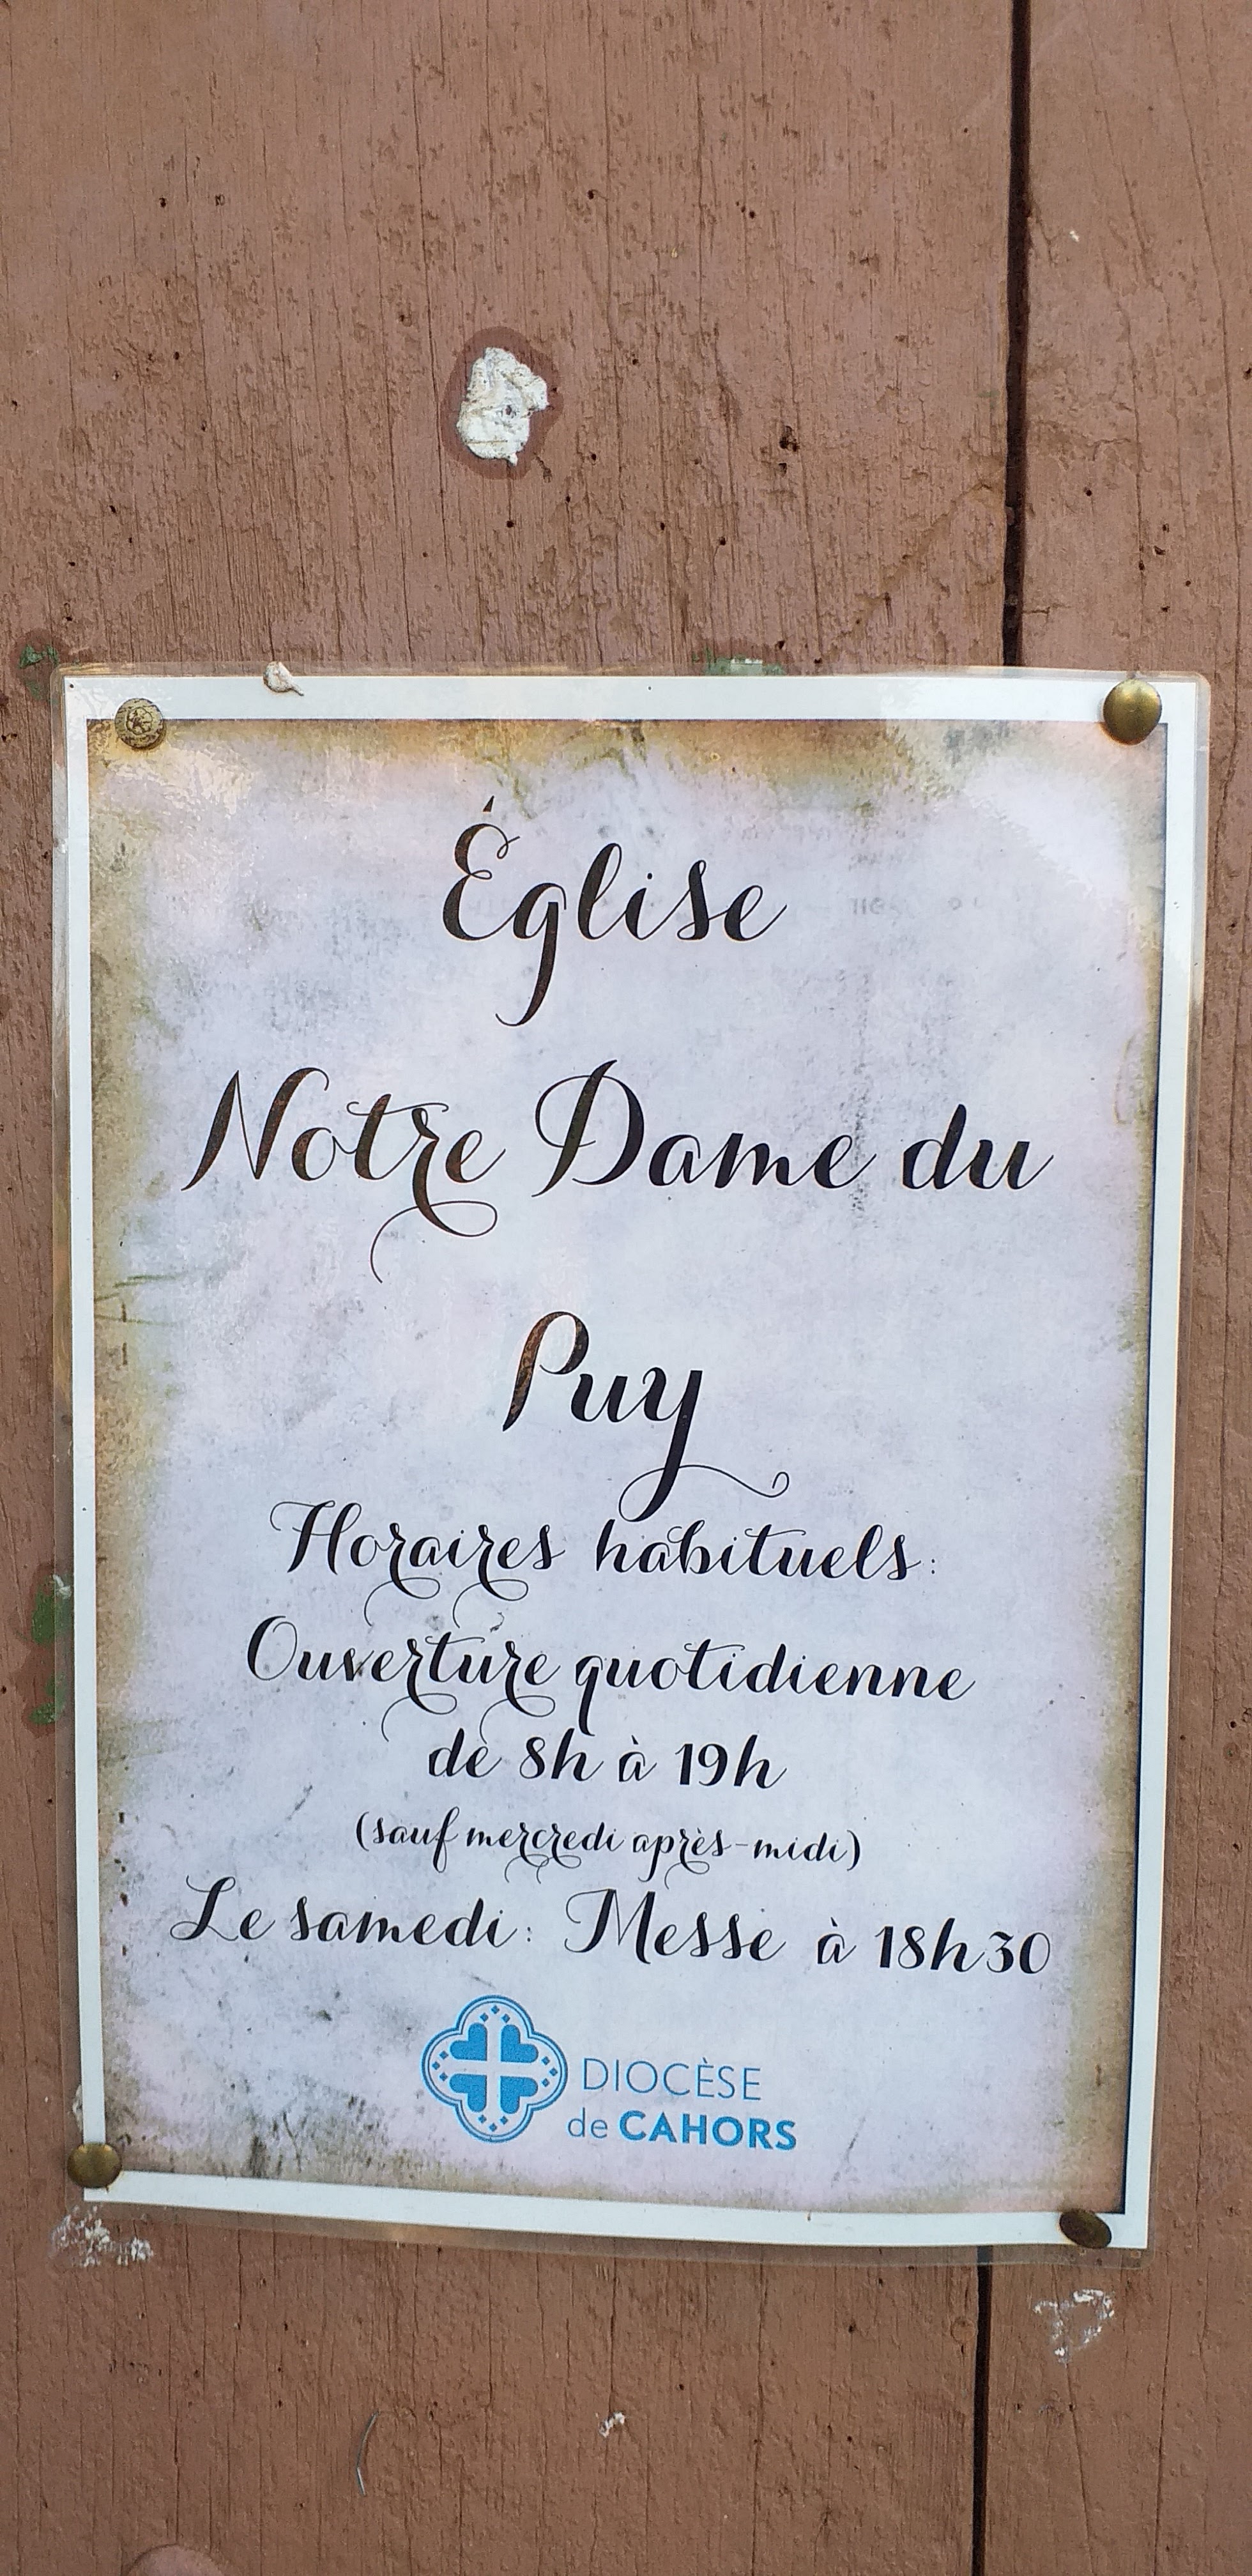 Église
Notre Dame du
Puy
Horaires habituels:
Ouverture quotidienne
de 8h à 19h
(sauf mercredi après-midi)
Le samedi: Messe à 18h30
DIOCÈSE
de CAHORS